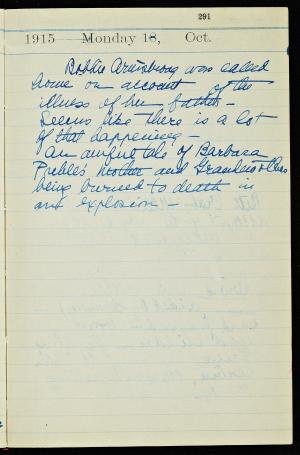 291
1915 Monday 18, Oct.
Bobbie Armstrong was called
home on account of the
illness of her father –
Seems like there is a lot
of that happening –
An awful tale of Barbara
Preble's brother and Grandmother
being burned to death in
an explosion –